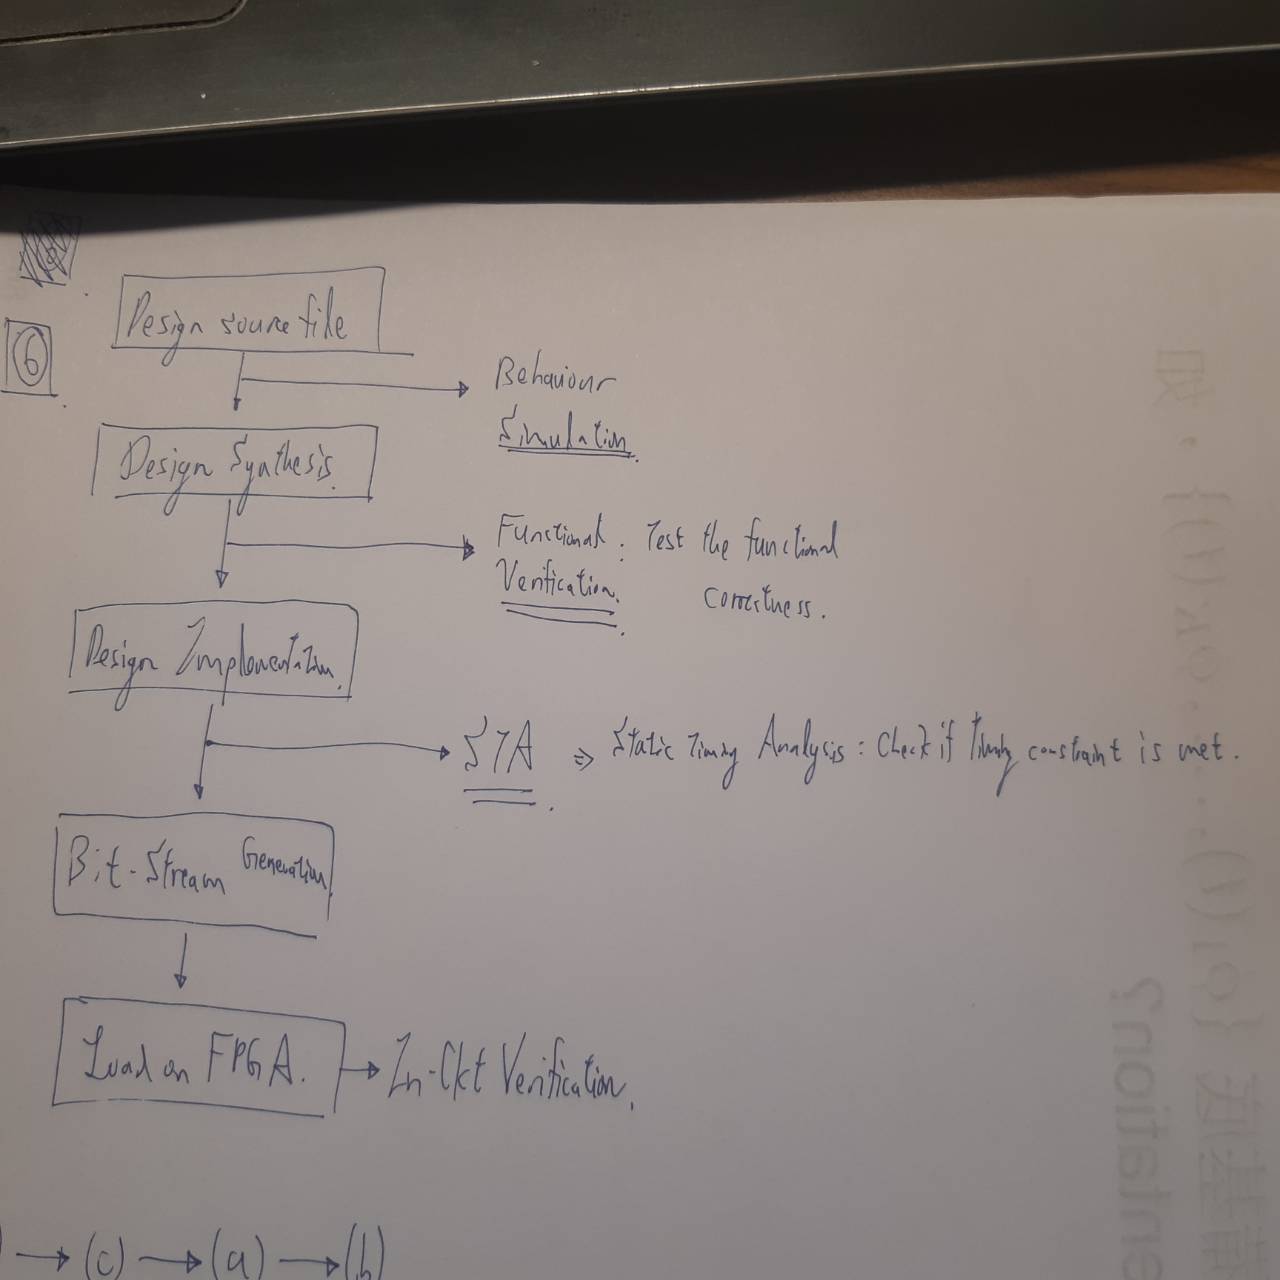 6
Design source file
Behaviour
Simulation.
Design Synthesis.
Functional : Test the functional
Verification. correctness.
Design Implementation.
STA => Static Timing Analysis : Check if Timing constraint is met.
Bit-Stream Generation.
Load on FPGA. → In-Ckt Verification.
→ (c) → (a) → (b)